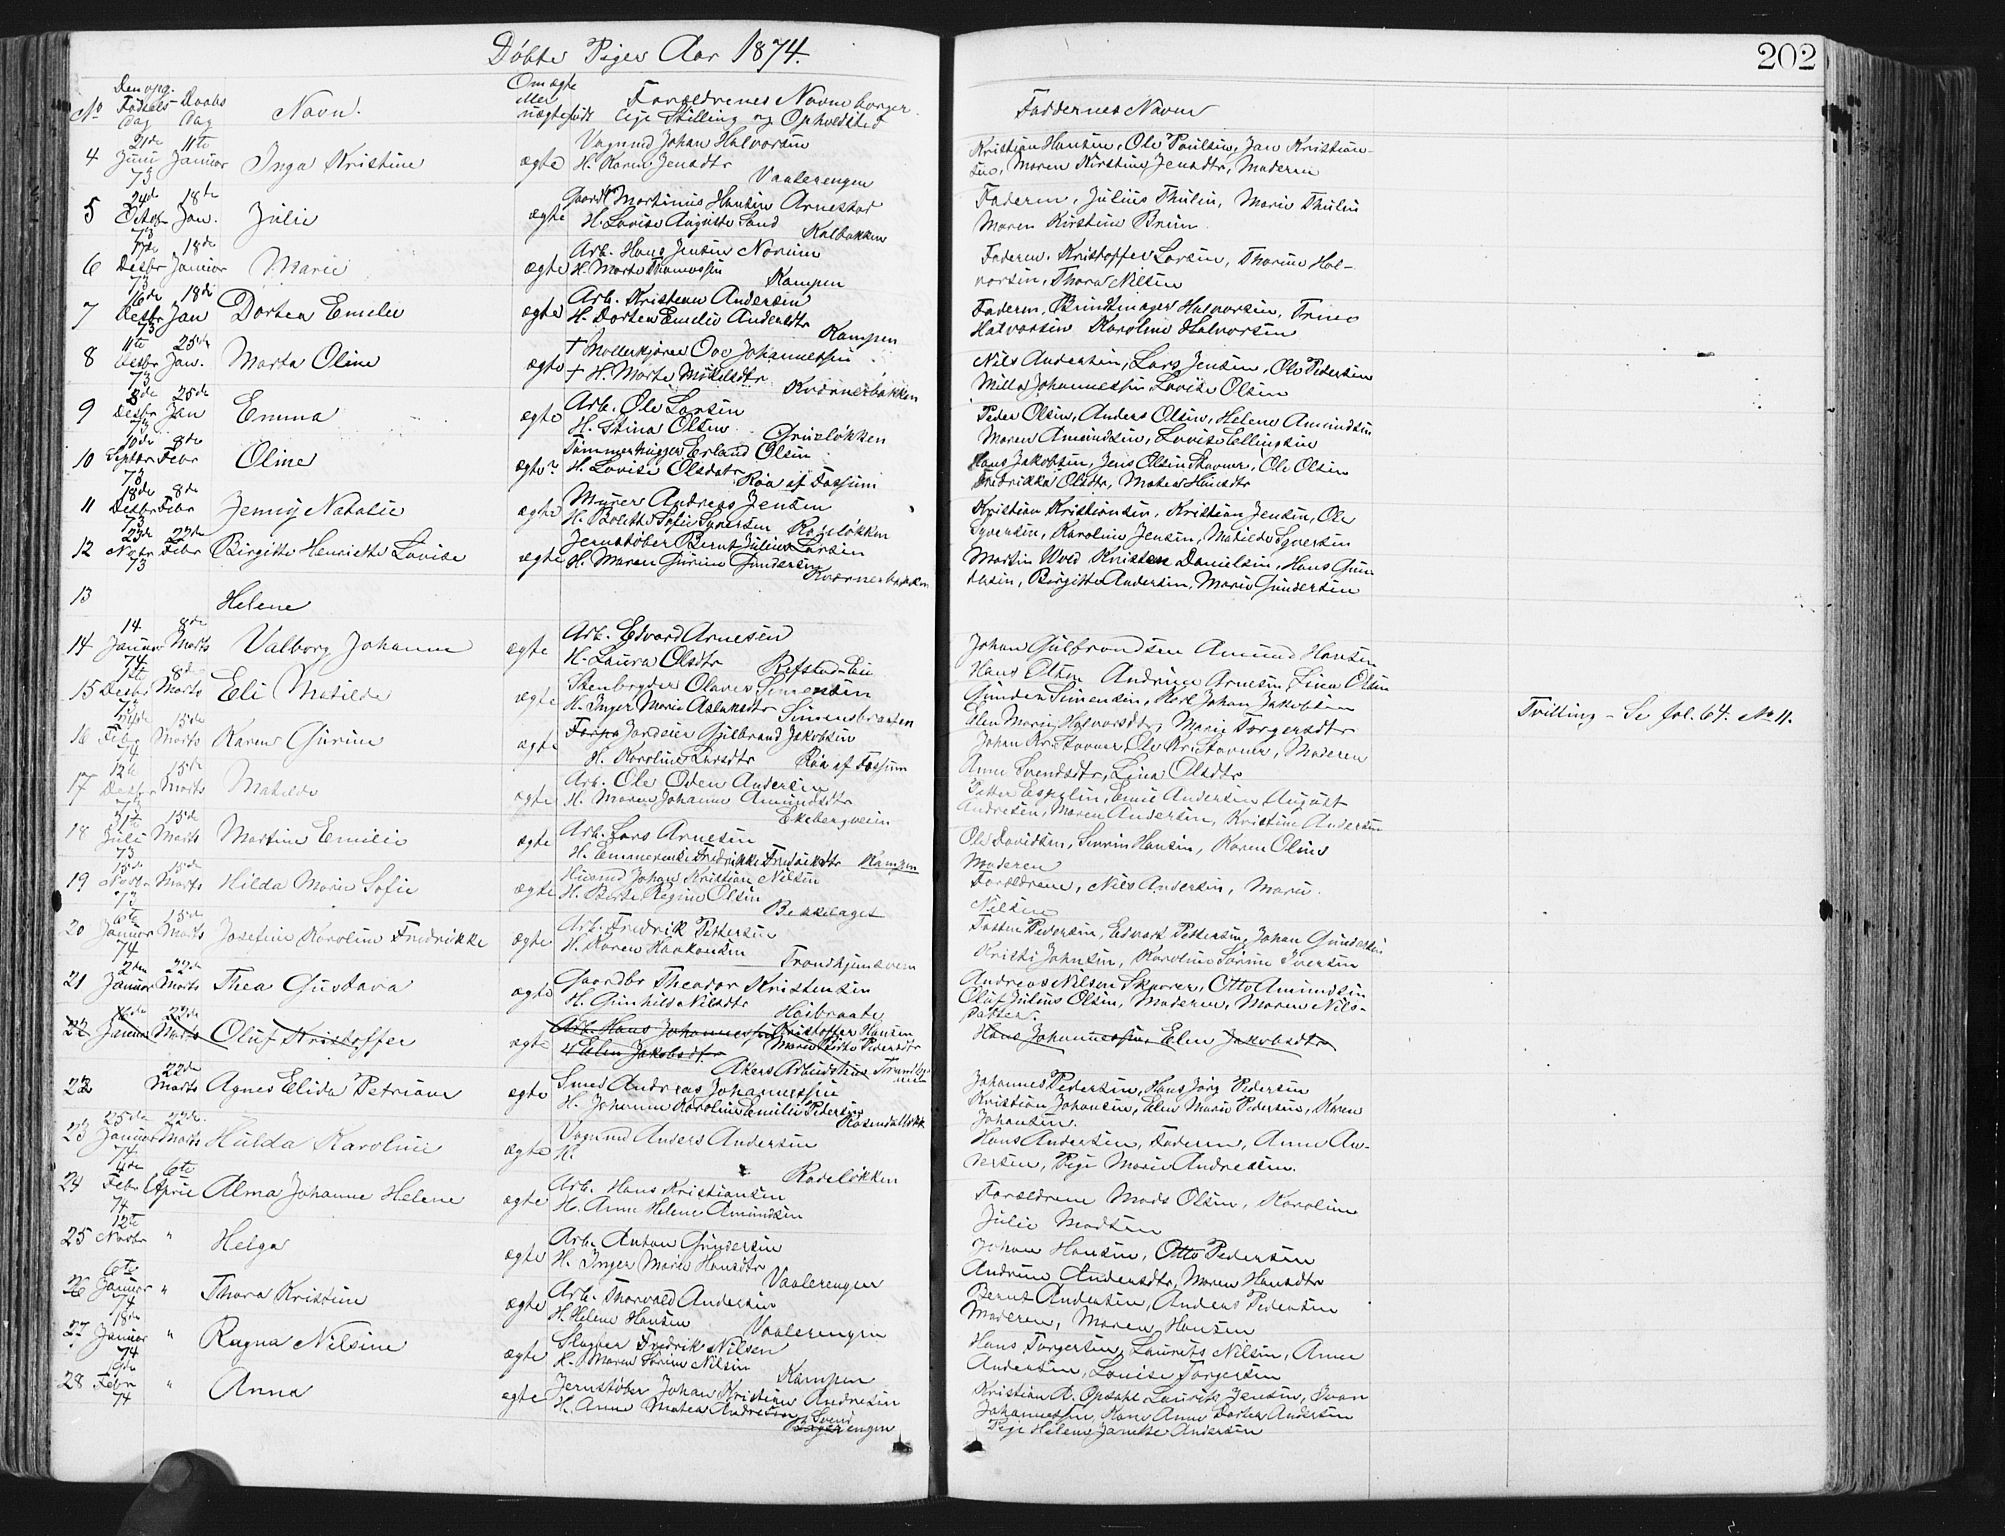 Döbte Piger Aar 1874.
202
No Den opg. Fødsels Dag Daabs Dag Navn. Om ægte eller uægte født Forældrenes Navn borger lige Stilling og Opholdsted Faddernes Navn
21de 11te Vognmd Johan Halvorsen
4 Juni Januar Inga Kristine ægte H. Karen Jensdtr Kristian Hansen, Ole Paulsen, Jan Kristian-
73 Vaalerengen sen, Maren Kirstine Jensdtr, Moderen
24de 18de Gaardbr Martinius Hansen Arnestad Faderen, Julius Thulin, Marie Thulin
5 Octbr Jan. Julie ægte H. Lovise Auguste Sand Maren Kirstine Bruun
73 Kalbakken
18de Arb. Hans Jensen Norum Faderen, Kristoffer Larsen, Thorine Hal-
6 Desbr Januar Marie ægte H. Marte Thomassen vorsen, Thora Nilsen
73 Kampen
16de 18de Arb. Kristian Andersen Faderen, Halvorsen, Trine
7 Desbr Jan Dortea Emelie ægte H. Dortea Emelie Andersdtr Halvorsen Karoline Halvorsen
73 Kampen
11te 25de † Møllerkjører Ove Johannessen Nils Andersen, Lars Jensen, Ole Pedersen
8 Desbr Jan. Marta Oline ægte † H. Marte Mikelsdtr Milla Johannessen Lovise Olsen
73 Kværnerbakken
8de 25de Arb. Ole Larsen Peder Olsen, Anders Olsen, Helene Amundsen
9 Desbr Jan Emma ægte H. Stina Olsen Maren Amundsen, Lovise Ellingsen
73 Grüneløkken
10de 8de Tømmerhugger Erland Olsen Hans Jakobsen, Jens Olsen Stovner, Ole Olsen
10 Septbr Febr Oline ægte H. Lovise Olsdatr Fredrikka Olsdtr, Matea Hansdtr
73 Røa af Fossum
18de 8de Murer Andreas Jensen Kristian Kristiansen, Kristian Jensen, Ole
11 Desbr Febr Jenny Natalie ægte H. Bolette Sofie Syvertsen Syversen, Karoline Jensen, Matilde Syversen
73 Rodeløkken
23de 22de Jernstøber Bernt Julius Larsen Martin Wold Kristen Danielsen, Hans Gun
12 Novbr Febr Birgitte Henriette Lovise ægte H. Maren Gurine Gundersen dersen, Birgitte Andersen, Marie Gundersen
73 Kværnerbakken
13 Helene
14 8de Arb. Edvard Arnesen Johan Gulbrandsen Amund Hansen
14 Januar Marts Valborg Johanne ægte H. Laura Olsdtr Hans Olsen Andrine Arnesen, Lina Olsen
74 Refstad Eie
8de Stenbryder Olaves Simensen Gunder Simensen, Karl Johan Jakobsen
15 Desbr Marts Eli Matilde ægte H. Inger Marie Aslaksdtr Elen Marie Halvorsdtr, Marie Torgersdtr Tvilling – Se fol. 64. No 11.
73 Simensbraaten
15de Jordeier Gulbrand Jakobsen Johan Kr. Stovner, Ole Kr. Stovner, Moderen
16 Febr Marts Karen Gurine ægte H. Karoline Larsdtr Anne Svendsdtr, Lina Olsdtr
Røa af Fossum
12te 15de Arb. Ole Oden Andersen Petter Espelin, Emil Andersen August
17 Desbr Marts Matilde ægte H. Maren Johanne Amundsdtr Andresen, Maren Andersen, Kristine Andersen
Ekebergveien
15de Arb. Lars Arnesen Ole Davidsen, Severin Hansen, Karen Oline
18 Juli Marts Martine Emilie ægte H. Emmerense Fredrikke Fredriksdtr Kampen Moderen
73
15de Husmd Johan Kristian Nilsen Forældrene, Nils Andersen, Marie
19 Novbr Marts Hilda Marie Sofie ægte H. Berte Regine Olsen Nilsen
73 Bekkelaget
6te 15de Arb. Fredrik Pettersen Tosten Pedersen, Edvart Pettersen, Johan Gundersen
20 Januar Marts Josefine Karoline Fredrikke ægte H. Karen Haakonsen Kristi Johnsen, Karoline Sørine Iversen
74 Trondhjemsveien
2den 22de Gaardbr Theodor Kristensen Andreas Nilsen Skarrer, Otto Amundsen
21 Januar Marts Thea Gustava ægte H. Gunhild Nilsdtr Oluf Julius Olsen, Moderen, Maren Nils-
Høibraate datter.
22de Arb. Hans Johannessen Kristoffer Hansen Hans Johannessen, Elen Jakobsdtr
22 Januar Marts Oluf Kristoffer ægte H Elen Jakobsdtr Marie Pedersdtr
Akers Arbeidshus
22de Smed Andreas Johannessen Johannes Pedersen, Hans Jörg Pedersen
22 Marts Agnes Elida Petriane ægte H. Johanne Karoline Emilie Pedersen Kristian Johansen, Elen Marie Pedersen, Karen
Johansen.
25de 22de Vognmd Anders Andersen Hans Andersen, Faderen, Anne An-
23 Januar Marts Hulda Karoline ægte H. dersen, Pige Marie Andresen.
74 Rodeløkken
4de 6te Arb. Hans Kristiansen Forældrene Mads Olsen, Karoline
24 Febr April Alma Johanne Helene ægte H. Anne Helene Amundsen Julie Madsen
74
12te Arb. Anton Gundersen Johan Hansen, Otto Pedersen
25 Novbr " Helga ægte H. Inger Marie Hansdtr Andrine Andersdtr, Maren Hansdtr
Vaalerengen
6te Arb. Thorvald Andersen Bernt Andersen, Anders Pedersen
26 Januar " Thora Kristine ægte H. Helene Hansen Moderen, Maren Hansen
74 Vaalerengen
18de Slagter Fredrik Nilsen Hans Torgersen, Laurits Nilsen, Anne
27 Januar " Ragna Nilsine ægte H. Maren Sørine Nilsen Andersen, Louise Torgersen
74 Kampen
Jernstøber Johan Kristian Andresen Kristian A. Opdahl, Laurits Jensen, Ivar
28 Febr " Anna ægte H. Anne Matea Andresen Johannessen, Kone Anne Dortea Andersen
74 Pige Helene Janette Andersen